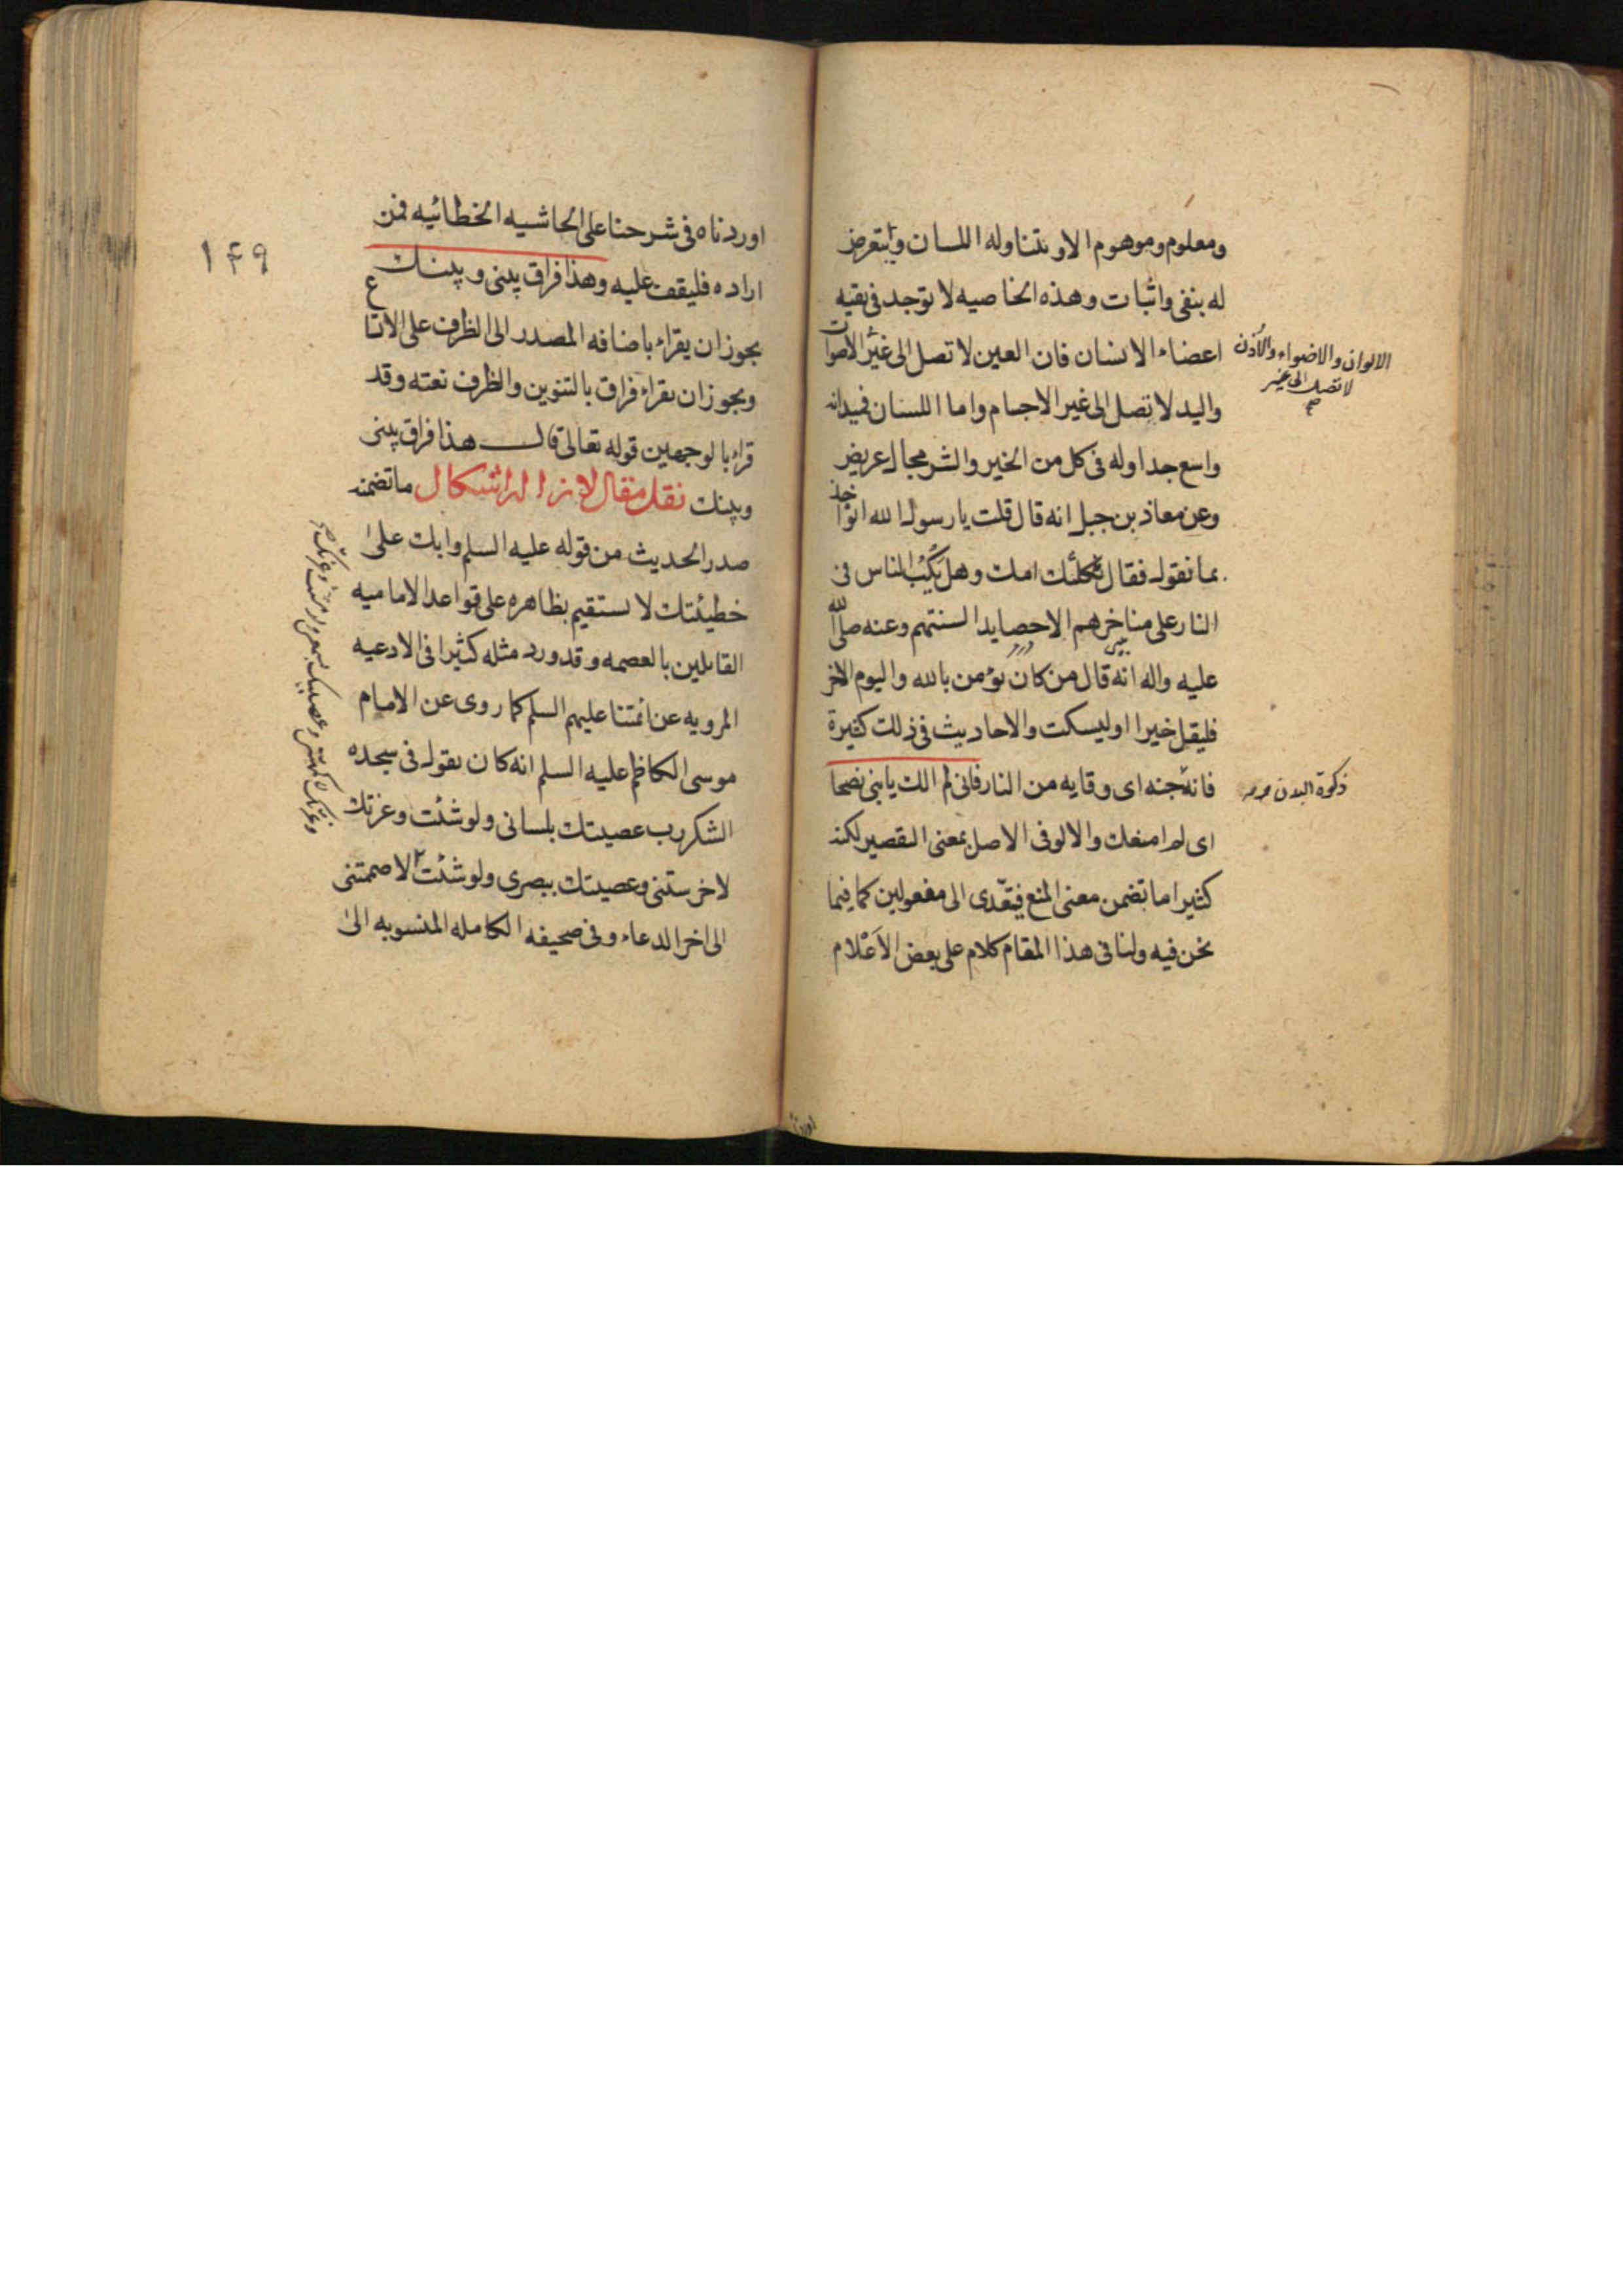 ومعلوم وموهوم الا ويتناوله اللسان ويتعرض
له بنفى واثبات وهذه الخاصيه لا توجد فى بقيه
اعضاء الانسان فان العين لا تصل الى غير الاصوات
الالوان والاضواء والاذن
لا تصل الى غير
صح
واليد لا تصل الى غير الاجسام واما اللسان فميدانه
واسع جدا وله فى كل من الخير والشر مجال عريض
وعن معاذ بن جبل انه قال قلت يا رسول الله انؤاخذ
بما نقول فقال ثكلتك امك وهل يَكُبُّ الناس فى
النار على مناخرهم الا حصايد السنتهم وعنه صلى الله
عليه واله انه قال من كان يؤمن بالله واليوم الاخر
فليقل خيرا او ليسكت والاحاديث فى ذلك كثيرة
فانه جنه اى وقايه من النار فانى لم الك يا بنى نصحا
اى لم امنعك والالو فى الاصل بمعنى التقصير لكنه
كثيرا ما تضمن معنى المنع فيتعّدى الى مفعولين كما فيما
نحن فيه ولنا فى هذا المقام كلام على بعض الاَعْلام
اوردنا
١۴٩
اوردناه فى شرحنا على الحاشيه الخطائيه فمن
اراده فليقف عليه وهذا فراق بينى وبينك
يجوز ان يقراء باضافه المصدر الى الظرف على الاتساع
ويجوز ان يقراء فراق بالتنوين والظرف نعته وقد
قراء بالوجهين قوله تعالى قال هذا فراق بينى
وبينك نقل مقال لازاله اشكال ما تضمنه
صدر الحديث من قوله عليه السلم وابك على
خطيئتك لا يستقيم بظاهره على قواعد الاماميه
القايلين بالعصمه وقد ورد مثله كثيرا فى الادعيه
المرويه عن ائمتنا عليهم السلم كما روى عن الامام
موسى الكاظم عليه السلم انه كان يقول فى سجده
الشكر رب عصيتك بلسانى ولو شئت وعزتك
لاخرستنى وعصيتك ببصرى ولو شئت لاصممتنى
وعزتك لاكمهتنى وعصيتك بسمعى ولو شئت وعزتك صح
الى اخر الدعاء وفى صحيفه الكامله المنسوبه الى